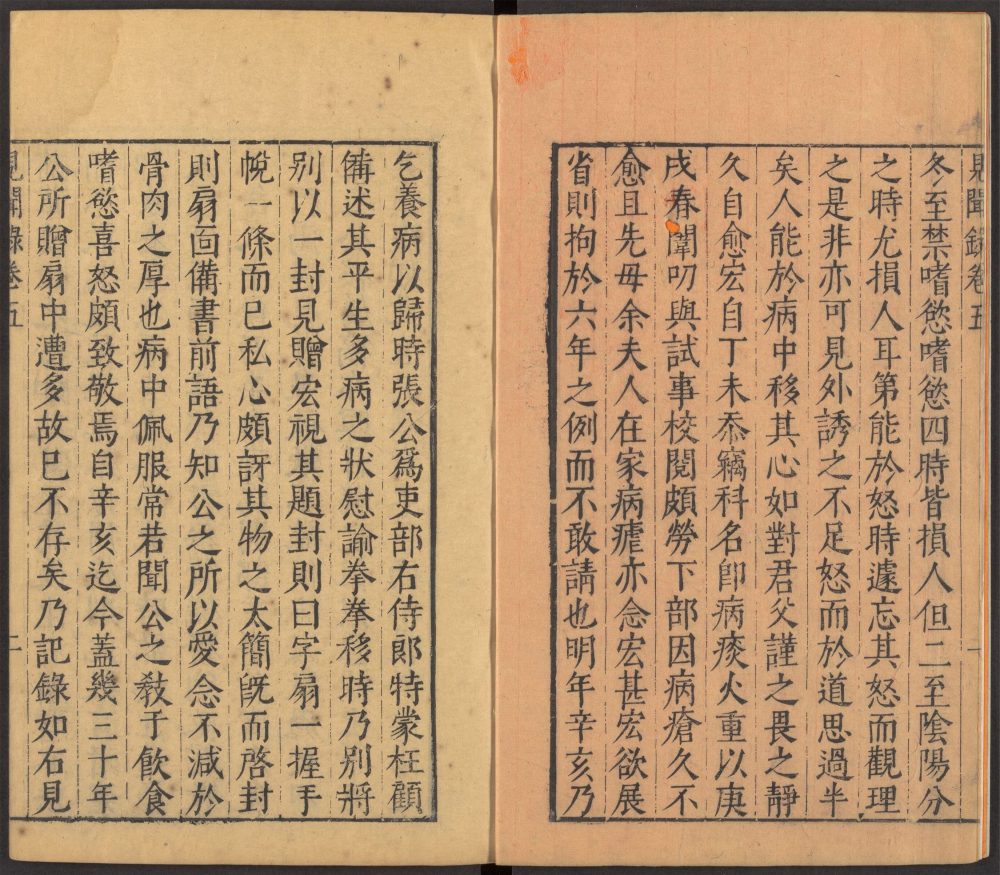 見聞錄卷五
冬至禁嗜慾嗜慾四時皆損人但二至陰陽分
之時尤損人耳第能於怒時遽忘其怒而觀理
之是非亦可見外誘之不足怒而於道思過半
矣人能於病中移其心如對君父謹之畏之靜
久自愈宏自丁未忝竊科名卽病痰火重以庚
戌春闈叨與試事校閱頗勞下部因病瘡久不
愈且先母余夫人在家病瘧亦念宏甚宏欲展
省則拘於六年之例而不敢請也明年辛亥乃
一
乞養病以歸時張公爲吏部右侍郎特蒙枉顧
備述其平生多病之狀慰諭拳拳移時乃別將
别以一封見贈宏視其題封則曰字扇一握手
帨一條而已私心頗訝其物之太簡旣而啓封
則扇面備書前語乃知公之所以愛念不減於
骨肉之厚也病中佩服常若聞公之敎于飮食
嗜慾喜怒頗致敬焉自辛亥迄今蓋幾三十年
公所贈扇中遭多故已不存矣乃記錄如右見
見聞錄卷五
二